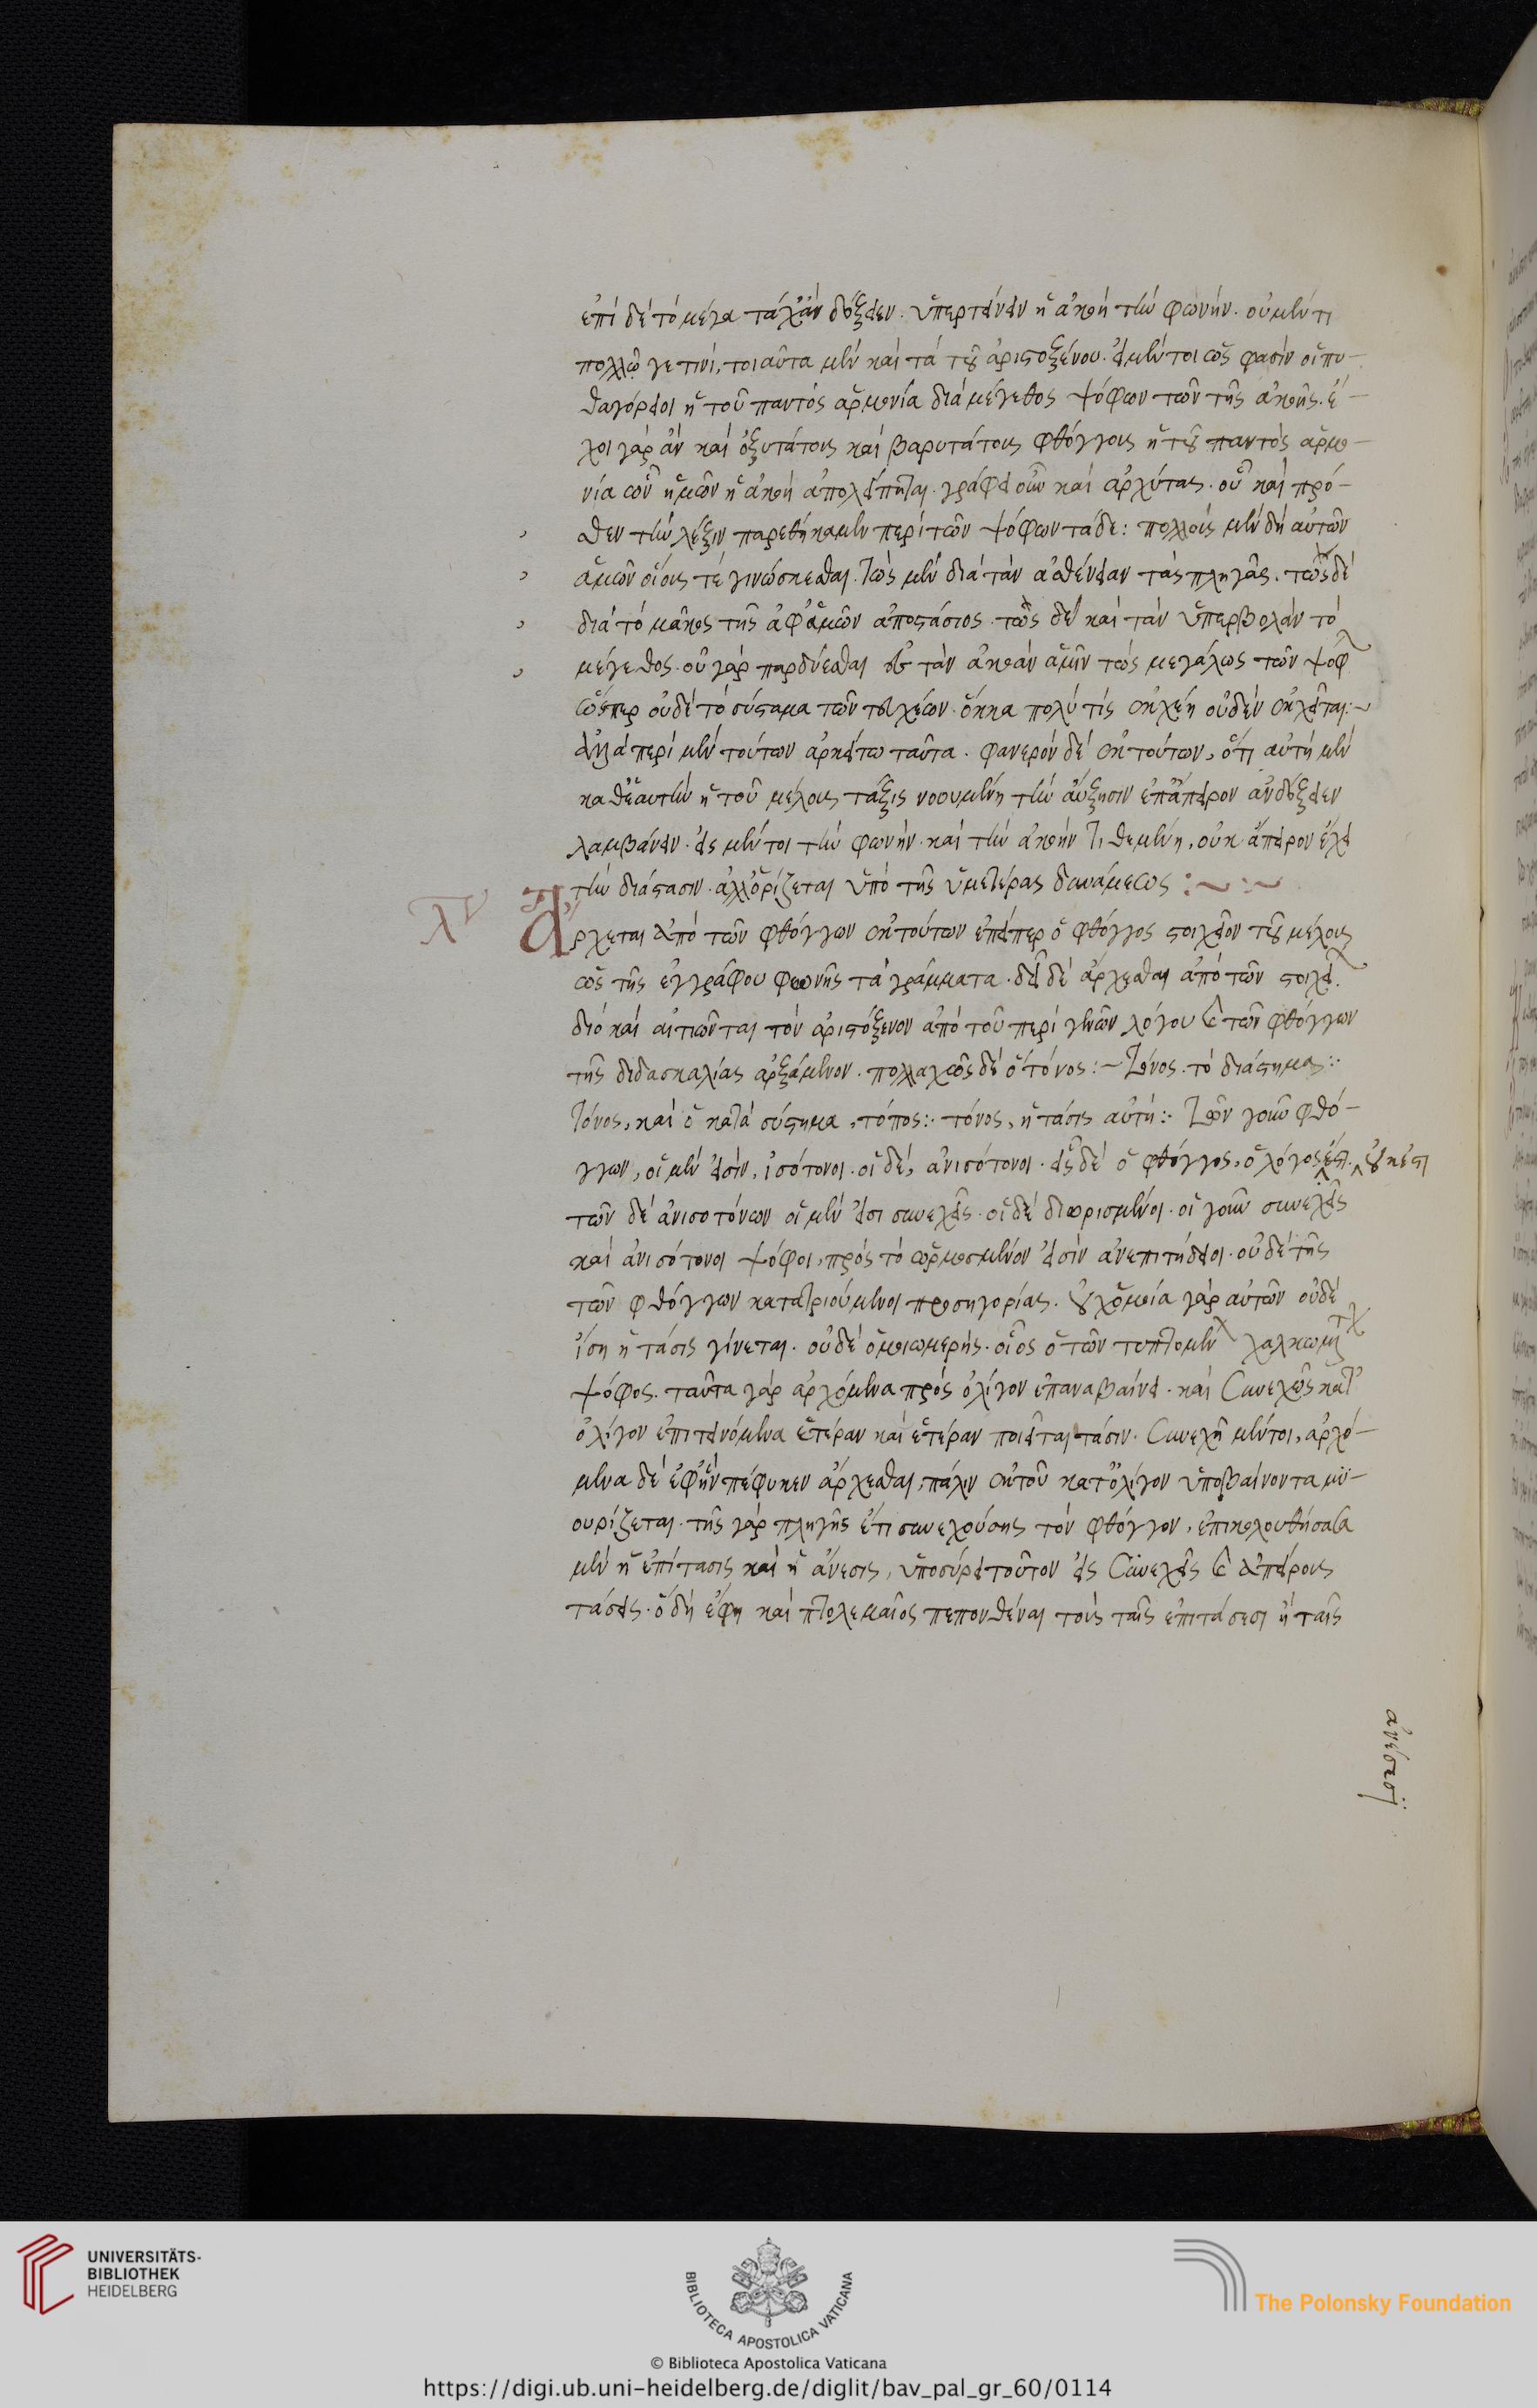 ἐπὶ δὲ τὸ μέγα τάχ' ἂν δόξειεν ὑπερτείνειν ἡ ἀκοὴ τὴν φωνήν. οὐ μέν τι
πολλῷ γε τινί. τοιαῦτα μὲν καὶ τὰ τοῦ ἀριστοξένου. εἰ μέν τοι ὥς φασιν οἱ πυ-
θαγόρειοι ἡ τοῦ παντὸς ἁρμονία διὰ μέγεθος ψόφων τῶν τῆς ἀκοῆς. ἔ-
χοι γὰρ ἂν καὶ ὀξυτάτους καὶ βαρυτάτους φθόγγους ἡ τοῦ παντὸς ἁρμο-
νία ὧν ἡμῶν ἡ ἀκοὴ ἀπολείπεται. γράφει οὖν καὶ ἀρχύτας. οὗ καὶ πρό-
σθεν τὴν λέξιν παρεθήκαμεν περὶ τῶν ψόφων τάδε: πολλοὺς μὲν δὴ αὐτῶν
ἁμῶν οἵους τὲ γινώσκεσθαι. τὼς μὲν διὰ τὰν ἀσθένειαν τὰς πληγᾶς. τὼς δὲ
διὰ τὸ μᾶκος τῆς ἀφ' ἁμῶν ἀποστάσιος. τὼς δὲ καὶ τὰν ὑπερβολὰν τὸ
μέγεθος. οὐ γὰρ παρδύεσθαι ἐς τὰν ἀκοὰν ἁμῖν τὼς μεγάλως τῶν ψόφ
ὥσπερ οὐδὲ τὸ σύσταμα τῶν τευχέων. ὅκκα πολύ τις ἐκχέῃ οὐδὲν ἐκχεῖται:~
ἀλλὰ περὶ μὲν τούτων ἀρκείτω ταῦτα. φανερὸν δὲ ἐκ τούτων, ὅτι αὐτὴ μὲν
καθ' ἑαυτὴν ἡ τοῦ μέλους τάξις νοουμένη τὴν αὔξησιν ἐπ' ἄπειρον ἂν δόξειεν
λαμβάνειν. εἰς μέν τοι τὴν φωνὴν καὶ τὴν ἀκοὴν τιθεμένη, οὐκ ἄπειρον ἔχει
τὴν διάστασιν. ἀλλ' ὁρίζεται ὑπὸ τῆς ὑμετέρας δυνάμεως :~:~
Ἄρχεται ἀπὸ τῶν φθόγγων ἐκ τούτων ἐπείπερ ὁ φθόγγος στοιχεῖον τοῦ μέλους
ὡς τῆς ἐγγράφου φωνῆς τὰ γράμματα. δεῖ δὲ ἄρχεσθαι ἀπὸ τῶν στοιχεί
διὸ καὶ αἰτιῶνται τὸν ἀριστόξενον ἀπὸ τοῦ περὶ γενῶν λόγου καὶ τῶν φθόγγων
τῆς διδασκαλίας ἀρξάμενον. πολλαχῶς δὲ ὁ τόνος:- τόνος. τὸ διάστημα:
τόνος, καὶ ὁ κατὰ σύστημα, τόπος: τόνος, ἡ τάσις αὐτή: τῶν γοῦν φθό-
γγων, οἱ μέν εἰσιν, ἰσότονοι. οἱ δὲ, ἀνισότονοι. εἷς δὲ ὁ φθόγγος, ὁ λόγος ἐστι. οὐκέτι
τῶν δὲ ἀνισοτόνων οἱ μέν εἰσι συνεχεῖς. οἱ δὲ διωρισμένοι. οἱ γοῦν συνεχεῖς
καὶ ἀνισότονοι ψόφοι, πρὸς τὸ ὡρμοσμένον εἰσὶν ἀνεπιτήδειοι. οὐδὲ τῆς
τῶν φθόγγων καταξιούμενοι προσηγορίας. οὐχ ὁμοία γὰρ αὐτῶν οὐδὲ
ἴση ἡ τάσις γίνεται. οὐδὲ ὁμοιωμερής. οἷος ὁ τῶν τυπτομέν χαλκωμά
ψόφος. ταῦτα γὰρ ἀρχόμενα πρὸς ὀλίγον ἐπαναβαίνει. καὶ συνεχῶς κατ'
ὀλίγον ἐπιτεινόμενα ἑτέραν καὶ ἑτέραν ποιεῖται τάσιν. συνεχῆ μέντοι, ἀρχό-
μενα δὲ ἐφ' ἣν πέφυκεν ἄρχεσθαι, πάλιν ἐκ τοῦ κατ' ὀλίγον ὑποβαίνοντα μυ-
ουρίζεται. τῆς γὰρ πληγῆς ἔτι συνεχούσης τὸν φθόγγον, ἐπικολουθήσασα
μὲν ἡ ἐπίτασις καὶ ἡ ἄνεσις, ὑποσύρει τοῦτον εἰς συνεχεῖς καὶ ἀπείρους
τάσεις. ὃ δὴ ἔφη καὶ πτολεμαῖος πεπονθέναι τοὺς ταῖς ἐπιτάσεσι ἢ ταῖς
ἀνέσεσι
UNIVERSITÄTS-
BIBLIOTHEK
HEIDELBERG
BIBLIOTECA APOSTOLICA VATICANA
The Polonsky Foundation
© Biblioteca Apostolica Vaticana
https://digi.ub.uni-heidelberg.de/diglit/bav_pal_gr_60/0114